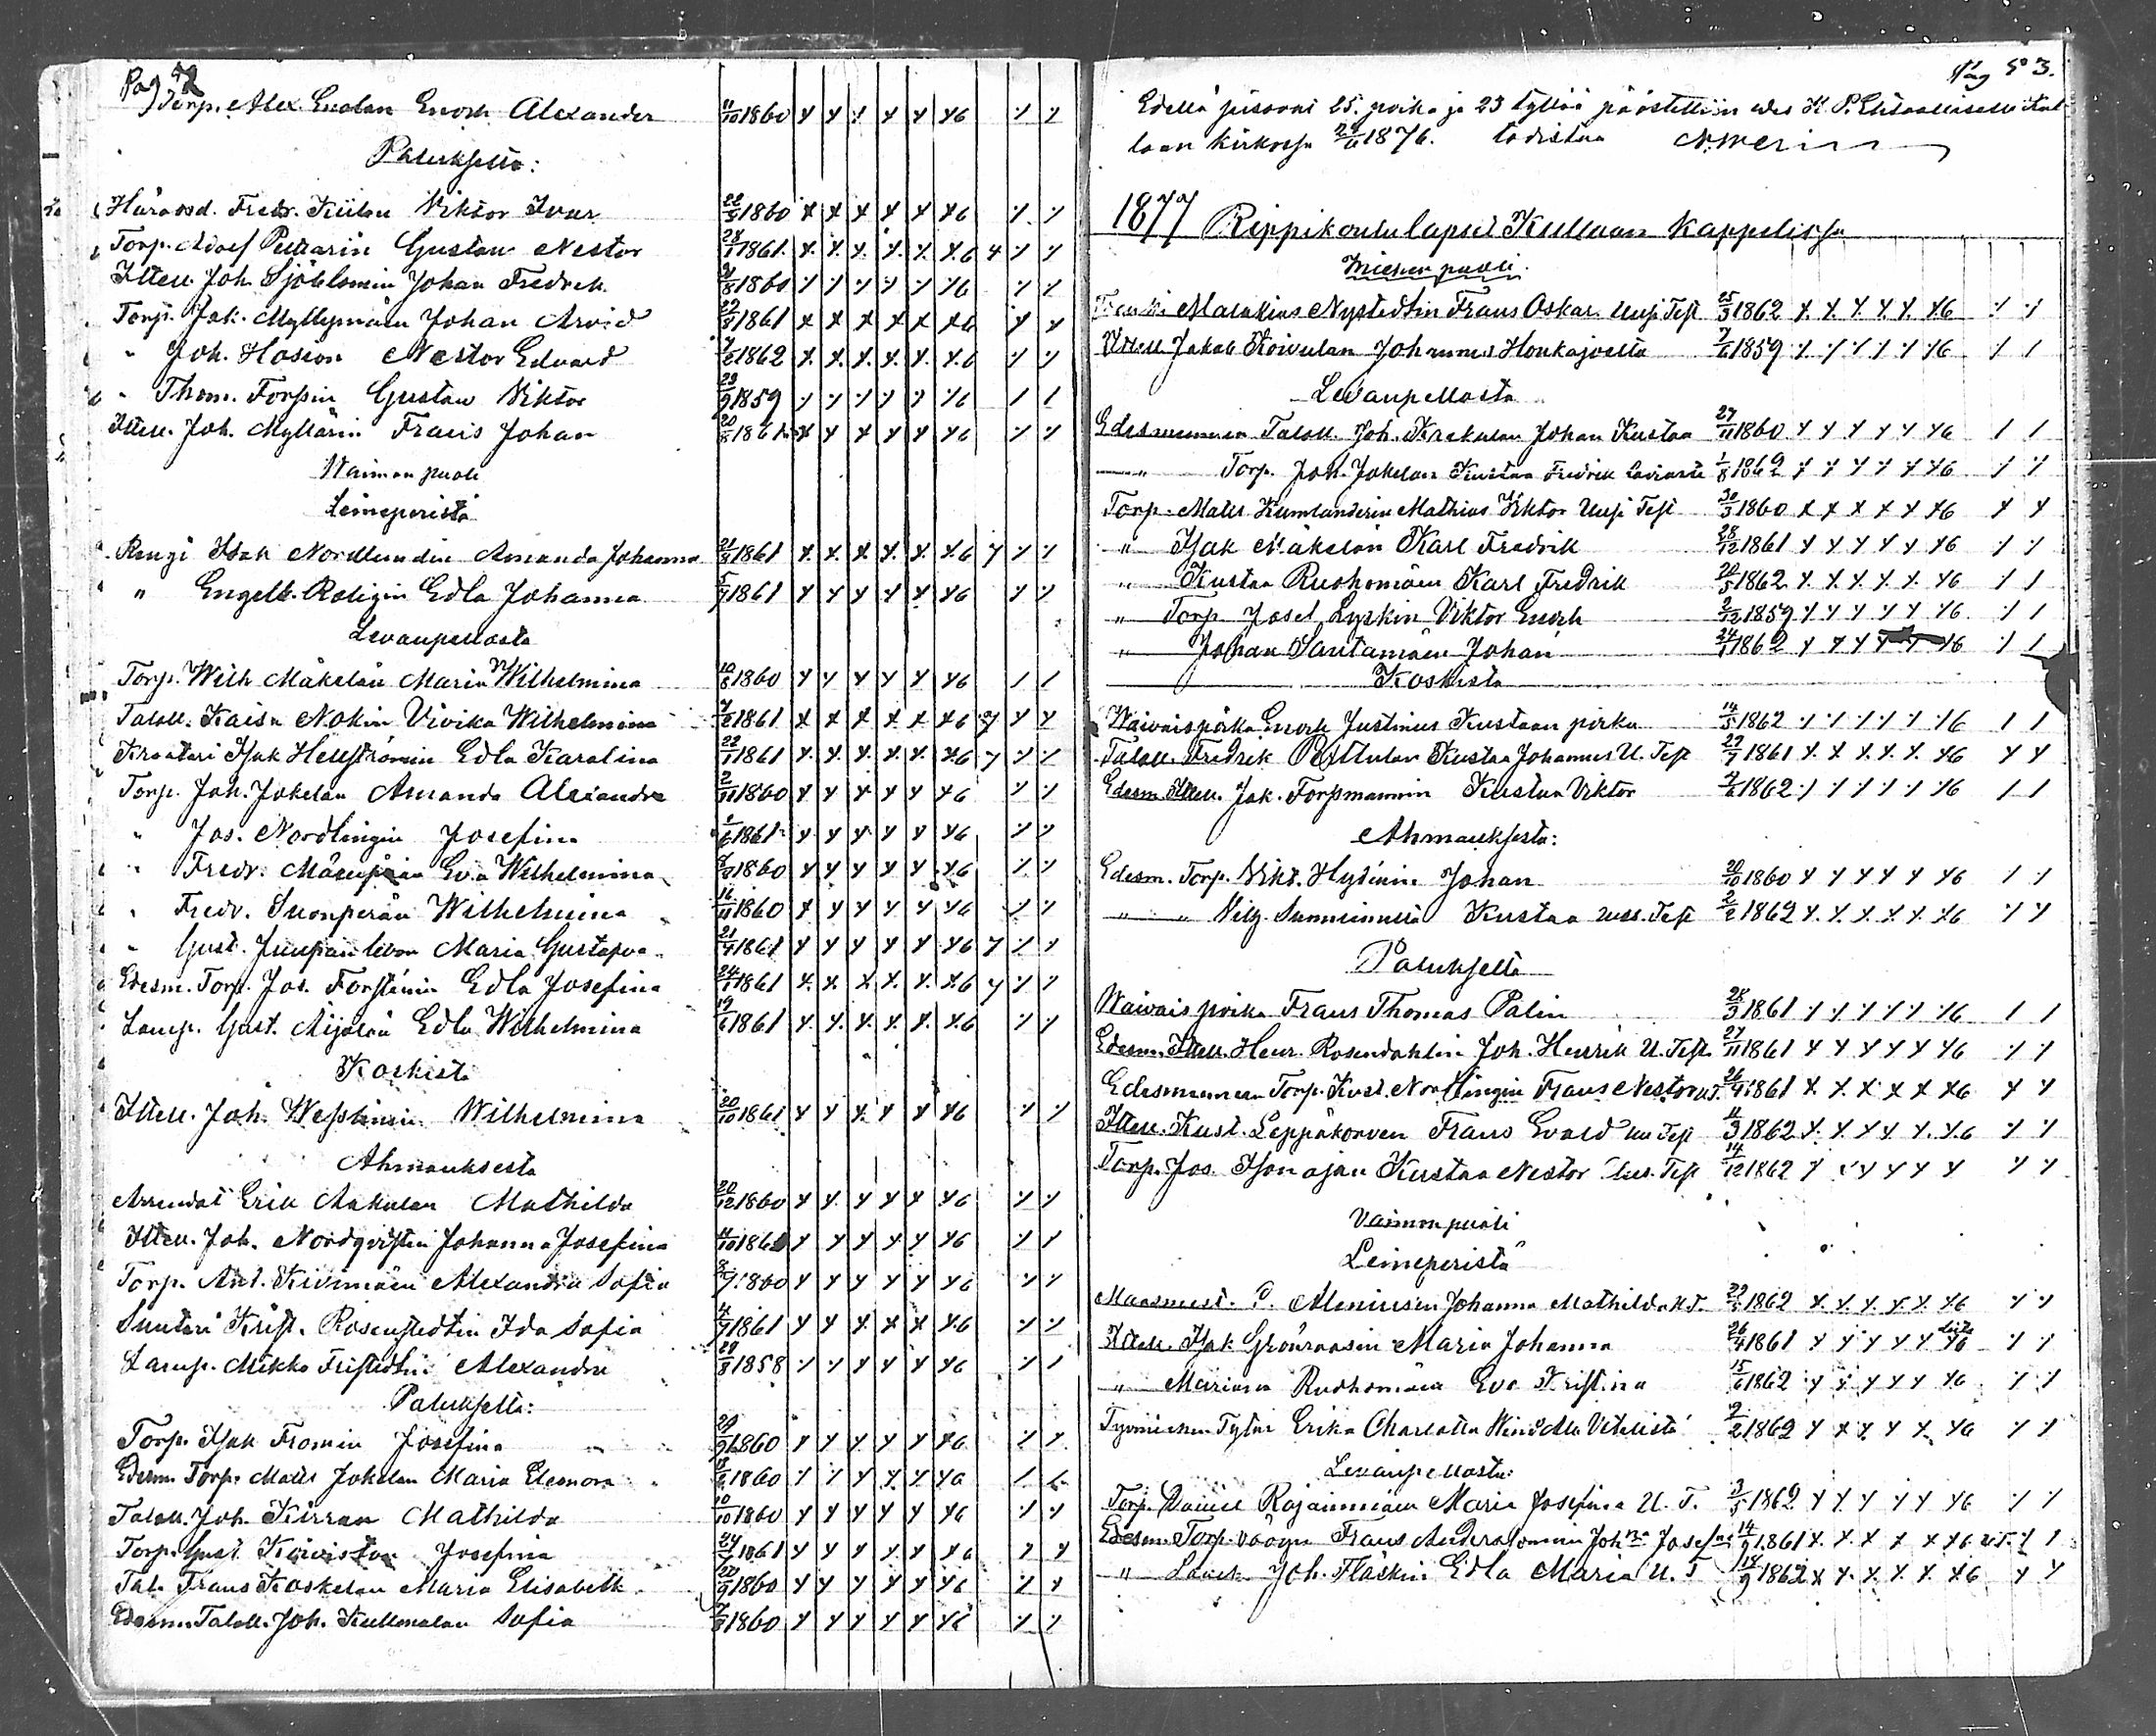 Pag 52
Torp. Alex. Enolan Enoch Alexander 11/10 1860
Palukselta:
Fredr. Kiilun Viktor Ivar 22/5 1860
Torp. Adolf Puttarin Gustav Nestor 28/1 1861. 4
Ittell. Joh. Sjöblomin Johan Fredrik 1860
Torp. Jak. Myllymäen Johan Arvid 1861
" Joh. Hosion Nestor Eduard 7/6 1862
" Thom. Forssin Gustav Viktor 23/9 1859
Ittell. Joh. Myllärin Frans Johan 20/8 1861
Waimon puoli
Leineperistä
Rengi Isak Nordlundin Amanda Johanna 21/8 1861 7
" Engelb. Roligin Edla Johanna 1861
Levanpellosta
Torp. Wilh Mäkelän Maria Wilhelmina 10/8 1860
Taloll. Kaisa Nokin Vivika Wilhelmina 1861 7
Kraatari Isak Hellströmin Edla Karolina 22/1 1861 7
Torp. Joh. Jokelan Amanda Alexandra 2/11 1860
" Jos. Nordlingin Josefina 1861
" Fredr. Mäenpään Eva Wilhelmina 1860
" Fredr. Suonperän Wilhelmina 16/11 1860
" Gust. Maria Gustafva 21/4 1861 7
Edesm. Torp. Jos. Forsténin Edla Josefina 24/1 1861 7
Lamp. Gust. Äijälän Edla Wilhelmina 19/6 1861
Koskista
Ittell. Joh. Wesslinin Wilhelmina 20/10 1861
Ahmauksesta
Arrendat. Erik Aakulan Mathilda 20/12 1860
Ittell. Joh. Nordqvistin Johanna Josefina
Torp. Ant. Kivimäen Alexandra Sofia 1860
Suutari Krist. Rosenstedtin Ida Sofia 4/7 1861
Lamp. Mikko Fristedtin Alexandra 1858
Palukselta:
Torp. Isak Fromin Josefina 1860
Edesm. Torp. Matts Jokelan Maria Eleonora 1860
Taloll. Joh. Kirran Mathilda 10/10 1860
Torp. Gust. Koiviston Josefina 1861
Tal. Frans Koskelan Maria Elisabeth 1860
Edesm. Taloll. Joh. Kullonalan Sofia 1860
Pag 53.
Edellä seisovat 25 poika ja 23 tyttöä päästettiin H. P. Ehtoolliselle
laan kirkossa 24/6 1876. todistaa
1877 Rippikoulu lapset Kullaan Kappelissa
Miehen puoli:
Malakias Nystedtin Frans Oskar Uusi Test 25/3 1862
Ittell Jakob Koivulan Johannes Honkajoelta 7/6 1859
Levanpellosta
Edesmennen Taloll. Joh. Krekulan Johan Kustaa 27/11 1860
" Torp. Joh. Jokelan Kustaa Fredrik 1/8 1862
Torp. Matts Kumlanderin Mathias Viktor Uusi Test 30/3 1860
" Isak Mäkelän Karl Fredrik 28/12 1861
" Kustaa Ruohomäen Karl Fredrik 20/5 1862
" Torp Josef Lyskin Viktor Enoch 2/12 1859
" Johan Santamäen Johan 24/1 1862
Koskista
Waivaispoika Enoch Justinus Kustaan poika 14/5 1862
Taloll. Fredrik Rittulan Kustaa Johannes U. Test 1861
Edesm. Ittell. Jak. Forssmannin Kustaa Viktor 4/6 1862
Ahmauksesta:
Edesm. Torp. Vikt. Hysinin Johan 20/10 1860
" " Kustaa uus. Test 2/2 1862
Palukselta
Waivais poika Frans Thomas Palin 28/3 1861
Edesm. Ittell. Henr. Rosendahlin Joh. Henrik U. Test. 27/11 1861
Edesmennen Torp. Kust. Nordlingin Frans Nestor U.T. 26/4 1861
Ittell. Kust. Leppäkorven Frans Evald uu Test 11/3 1862
Torp. Jos. Isonojan Kustaa Nestor uus. Test 14/12 1862
Vaimon puoli
Leineperistä
Maasmest. Aleniusen Johanna Mathilda U.T. 1862
Ittell. Isak Grönroosin Maria Johanna 26/4 1861
" Ruohomäen Eva Kristina 15/6 1862
Erika Charlotta 1862
Levanpellosta:
Torp. Daniel Rajainmäen Maria Josefina U. T. 3/5 1862
Edesm. Torp. Frans Anderssonnin Joh:na Josef:na 14/9 1861 U.T.
" Joh. Fläskin Edla Maria U. T 1862